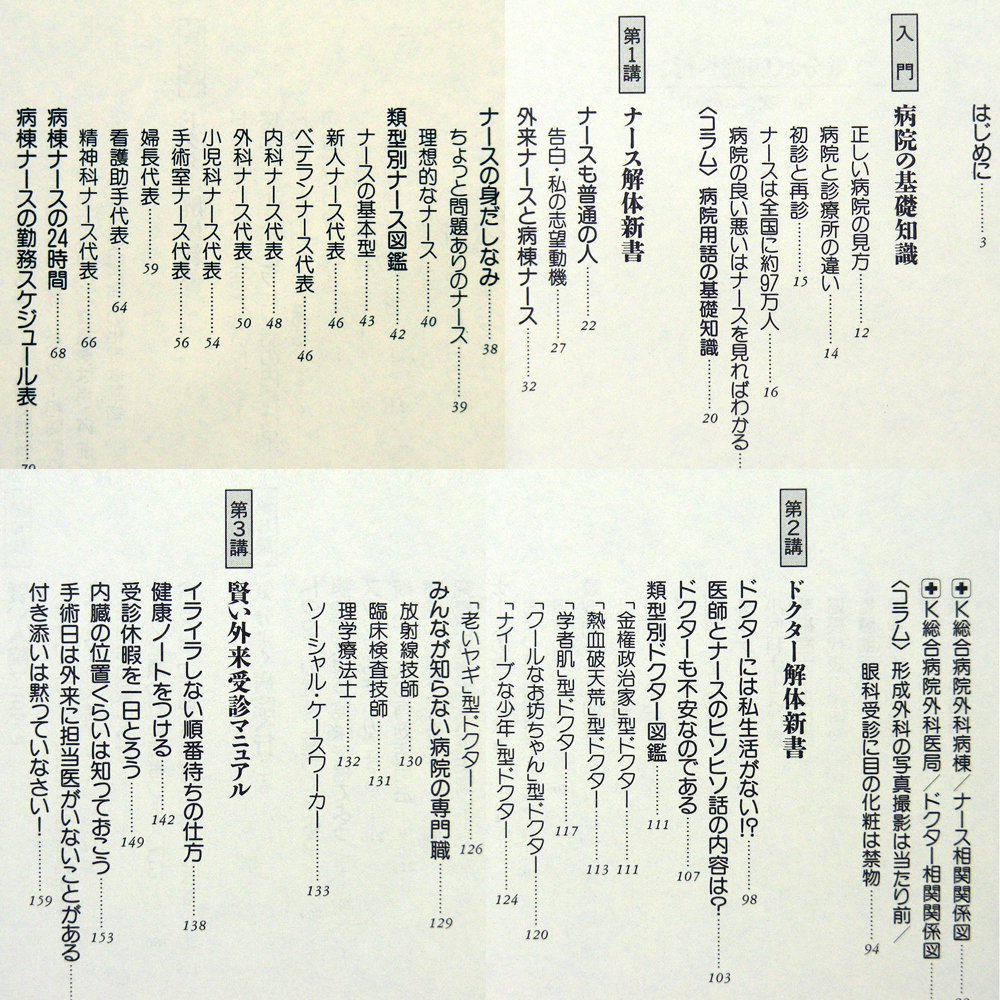 はじめに……3
入門 病院の基礎知識
正しい病院の見方……12
病院と診療所の違い……14
初診と再診……15
ナースは全国に約97万人……16
病院の良い悪いはナースを見ればわかる……
〈コラム〉病院用語の基礎知識……20
第1講 ナース解体新書
ナースも普通の人……22
告白・私の志望動機……27
外来ナースと病棟ナース……32
ナースの身だしなみ……38
ちょっと問題ありのナース……39
理想的なナース……40
類型別ナース図鑑……42
ナースの基本型……43
新人ナース代表……46
ベテランナース代表……46
内科ナース代表……48
外科ナース代表……50
小児科ナース代表……54
手術室ナース代表……56
婦長代表……59
看護助手代表……64
精神科ナース代表……66
病棟ナースの24時間……68
病棟ナースの勤務スケジュール表……70
✚K総合病院外科病棟／ナース相関関係図……
✚K総合病院外科医局／ドクター相関関係図……
〈コラム〉形成外科の写真撮影は当たり前／
眼科受診に目の化粧は禁物……94
第2講 ドクター解体新書
ドクターには私生活がない!?……98
医師とナースのヒソヒソ話の内容は?……103
ドクターも不安なのである……107
類型別ドクター図鑑……111
「金権政治家」型ドクター……111
「熱血破天荒」型ドクター……113
「学者肌」型ドクター……117
「クールなお坊ちゃん」型ドクター……120
「ナイーブな少年」型ドクター……124
「老いヤギ」型ドクター……126
みんなが知らない病院の専門職……129
放射線技師……130
臨床検査技師……131
理学療法士……132
ソーシャル・ケースワーカー……133
第3講 賢い外来受診マニュアル
イライラしない順番待ちの仕方……138
健康ノートをつける……142
受診休暇を一日とろう……149
内臓の位置くらいは知っておこう……153
手術日は外来に担当医がいないことがある……
付き添いは黙っていなさい!……159